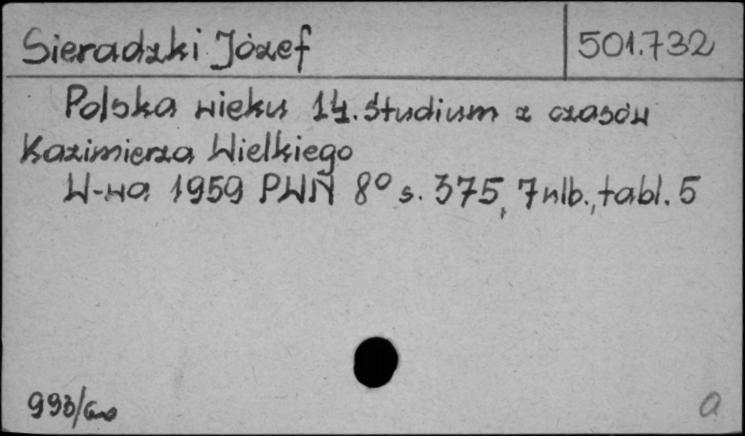 Sieradzki Józef
501.732
Polska wieku 14. Studium z czasów
Kazimierza Wielkiego
W-wa 1959 PWN 8° s. 375, 7 nlb., tabl. 5
993/
a